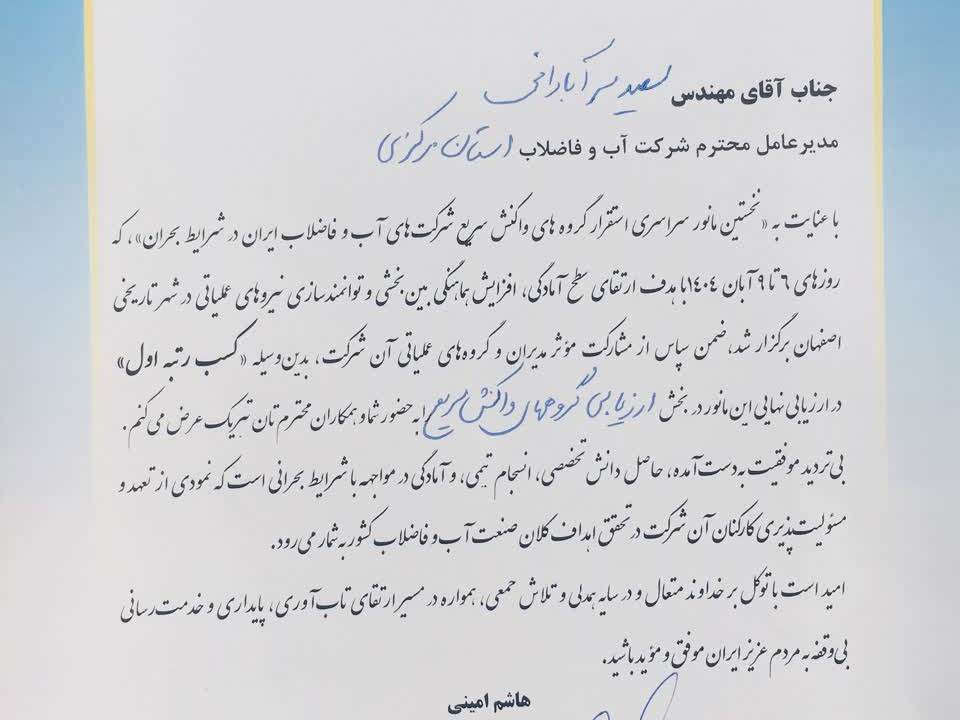 جناب آقای مهندس سعید سرآبادانی
مدیرعامل محترم شرکت آب و فاضلاب استان مرکزی
با عنایت به «نخستین مانور سراسری استقرار گروه های واکنش سریع شرکت‌های آب و فاضلاب ایران در شرایط بحران»، که
روزهای ۶ تا ۹ آبان ۱۴۰۴ با هدف ارتقای سطح آمادگی، افزایش هماهنگی بین‌بخشی و توانمندسازی نیروهای عملیاتی در شهر تاریخی
اصفهان برگزار شد، ضمن سپاس از مشارکت مؤثر مدیران و گروه‌های عملیاتی آن شرکت، بدین‌وسیله «کسب رتبه اول»
در ارزیابی نهایی این مانور در بخش ارزیابی گروههای واکنش سریع را به حضور شما و همکاران محترم‌تان تبریک عرض می‌کنم.
بی‌تردید موفقیت به‌دست‌آمده، حاصل دانش تخصصی، انسجام تیمی، و آمادگی در مواجهه با شرایط بحرانی است که نمودی از تعهد و
مسئولیت‌پذیری کارکنان آن شرکت در تحقق اهداف کلان صنعت آب و فاضلاب کشور به‌شمار می‌رود.
امید است با توکل بر خداوند متعال و در سایه همدلی و تلاش جمعی، همواره در مسیر ارتقای تاب‌آوری، پایداری و خدمت‌رسانی
بی‌وقفه به مردم عزیز ایران موفق و مؤید باشید.
هاشم امینی